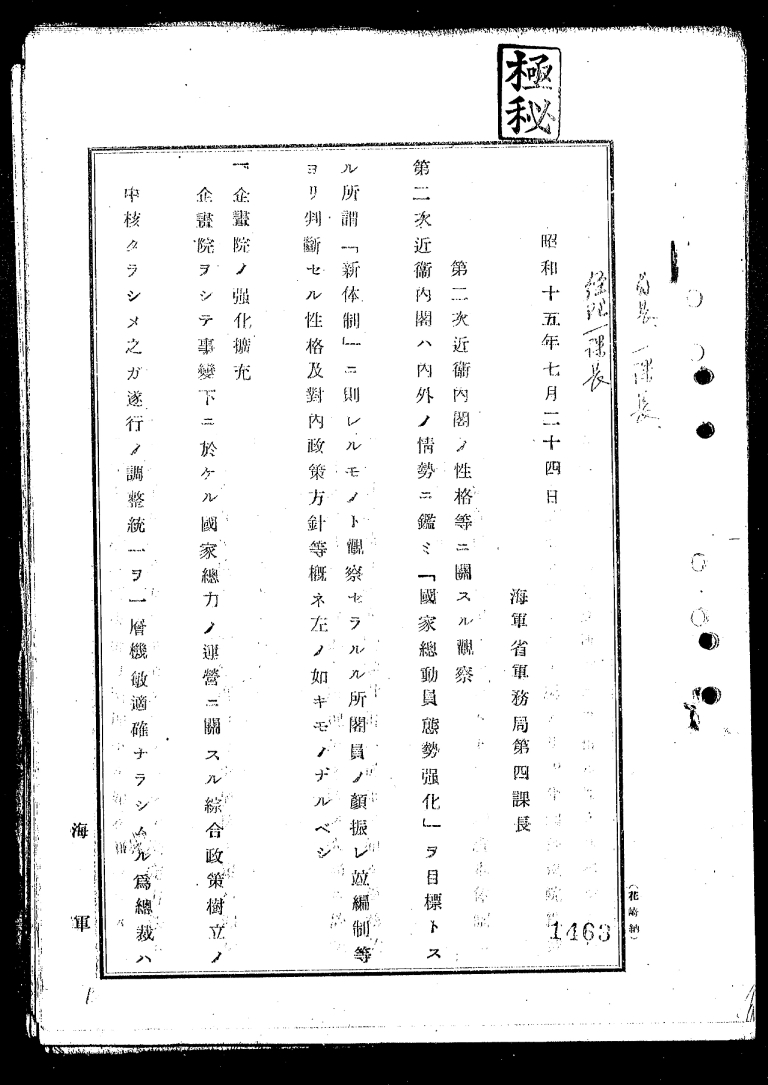 極秘
局長 一課長
経理一課長
昭和十五年七月二十四日
海軍省軍務局第四課長
第二次近衞內閣ノ性格等ニ關スル觀察
第二次近衞內閣ハ內外ノ情勢ニ鑑ミ「國家總動員態勢强化」ヲ目標トス
ル所謂「新体制」ニ則レルモノト觀察セラルル所閣員ノ顏振レ竝編制等
ヨリ判斷セル性格及對內政策方針等槪ネ左ノ如キモノナルベシ
一、企畫院ノ强化擴充
企畫院ヲシテ事變下ニ於ケル國家總力ノ運營ニ關スル綜合政策樹立ノ
中核タラシメ之ガ遂行ノ調整統一ヲ一層機敏適確ナラシムル爲總裁ハ
海軍
1463